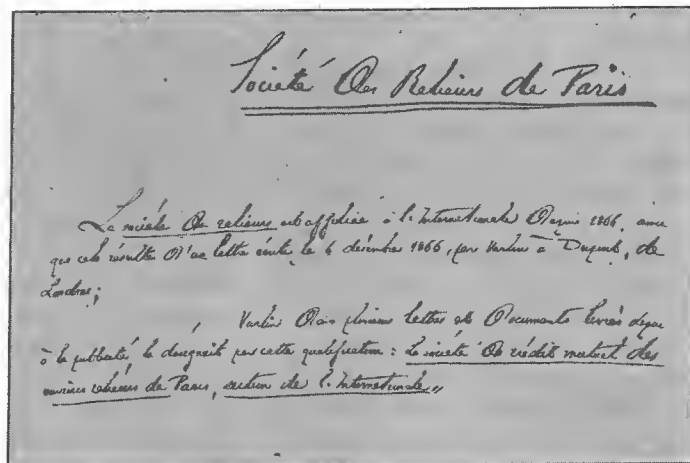 Société Des Relieurs de Paris
La société de relieurs est affiliée à l'Internationale Depuis 1866, ainsi
que cela résulte d'une lettre écrite, le 6 décembre 1866, par Varlin à Dupont, de
Londres;
Varlin Dans plusieurs lettres et Documents livrés
à la publicité la désignait par cette qualification : la société de crédit mutuel des
ouvriers relieurs de Paris, section de l'Internationale"